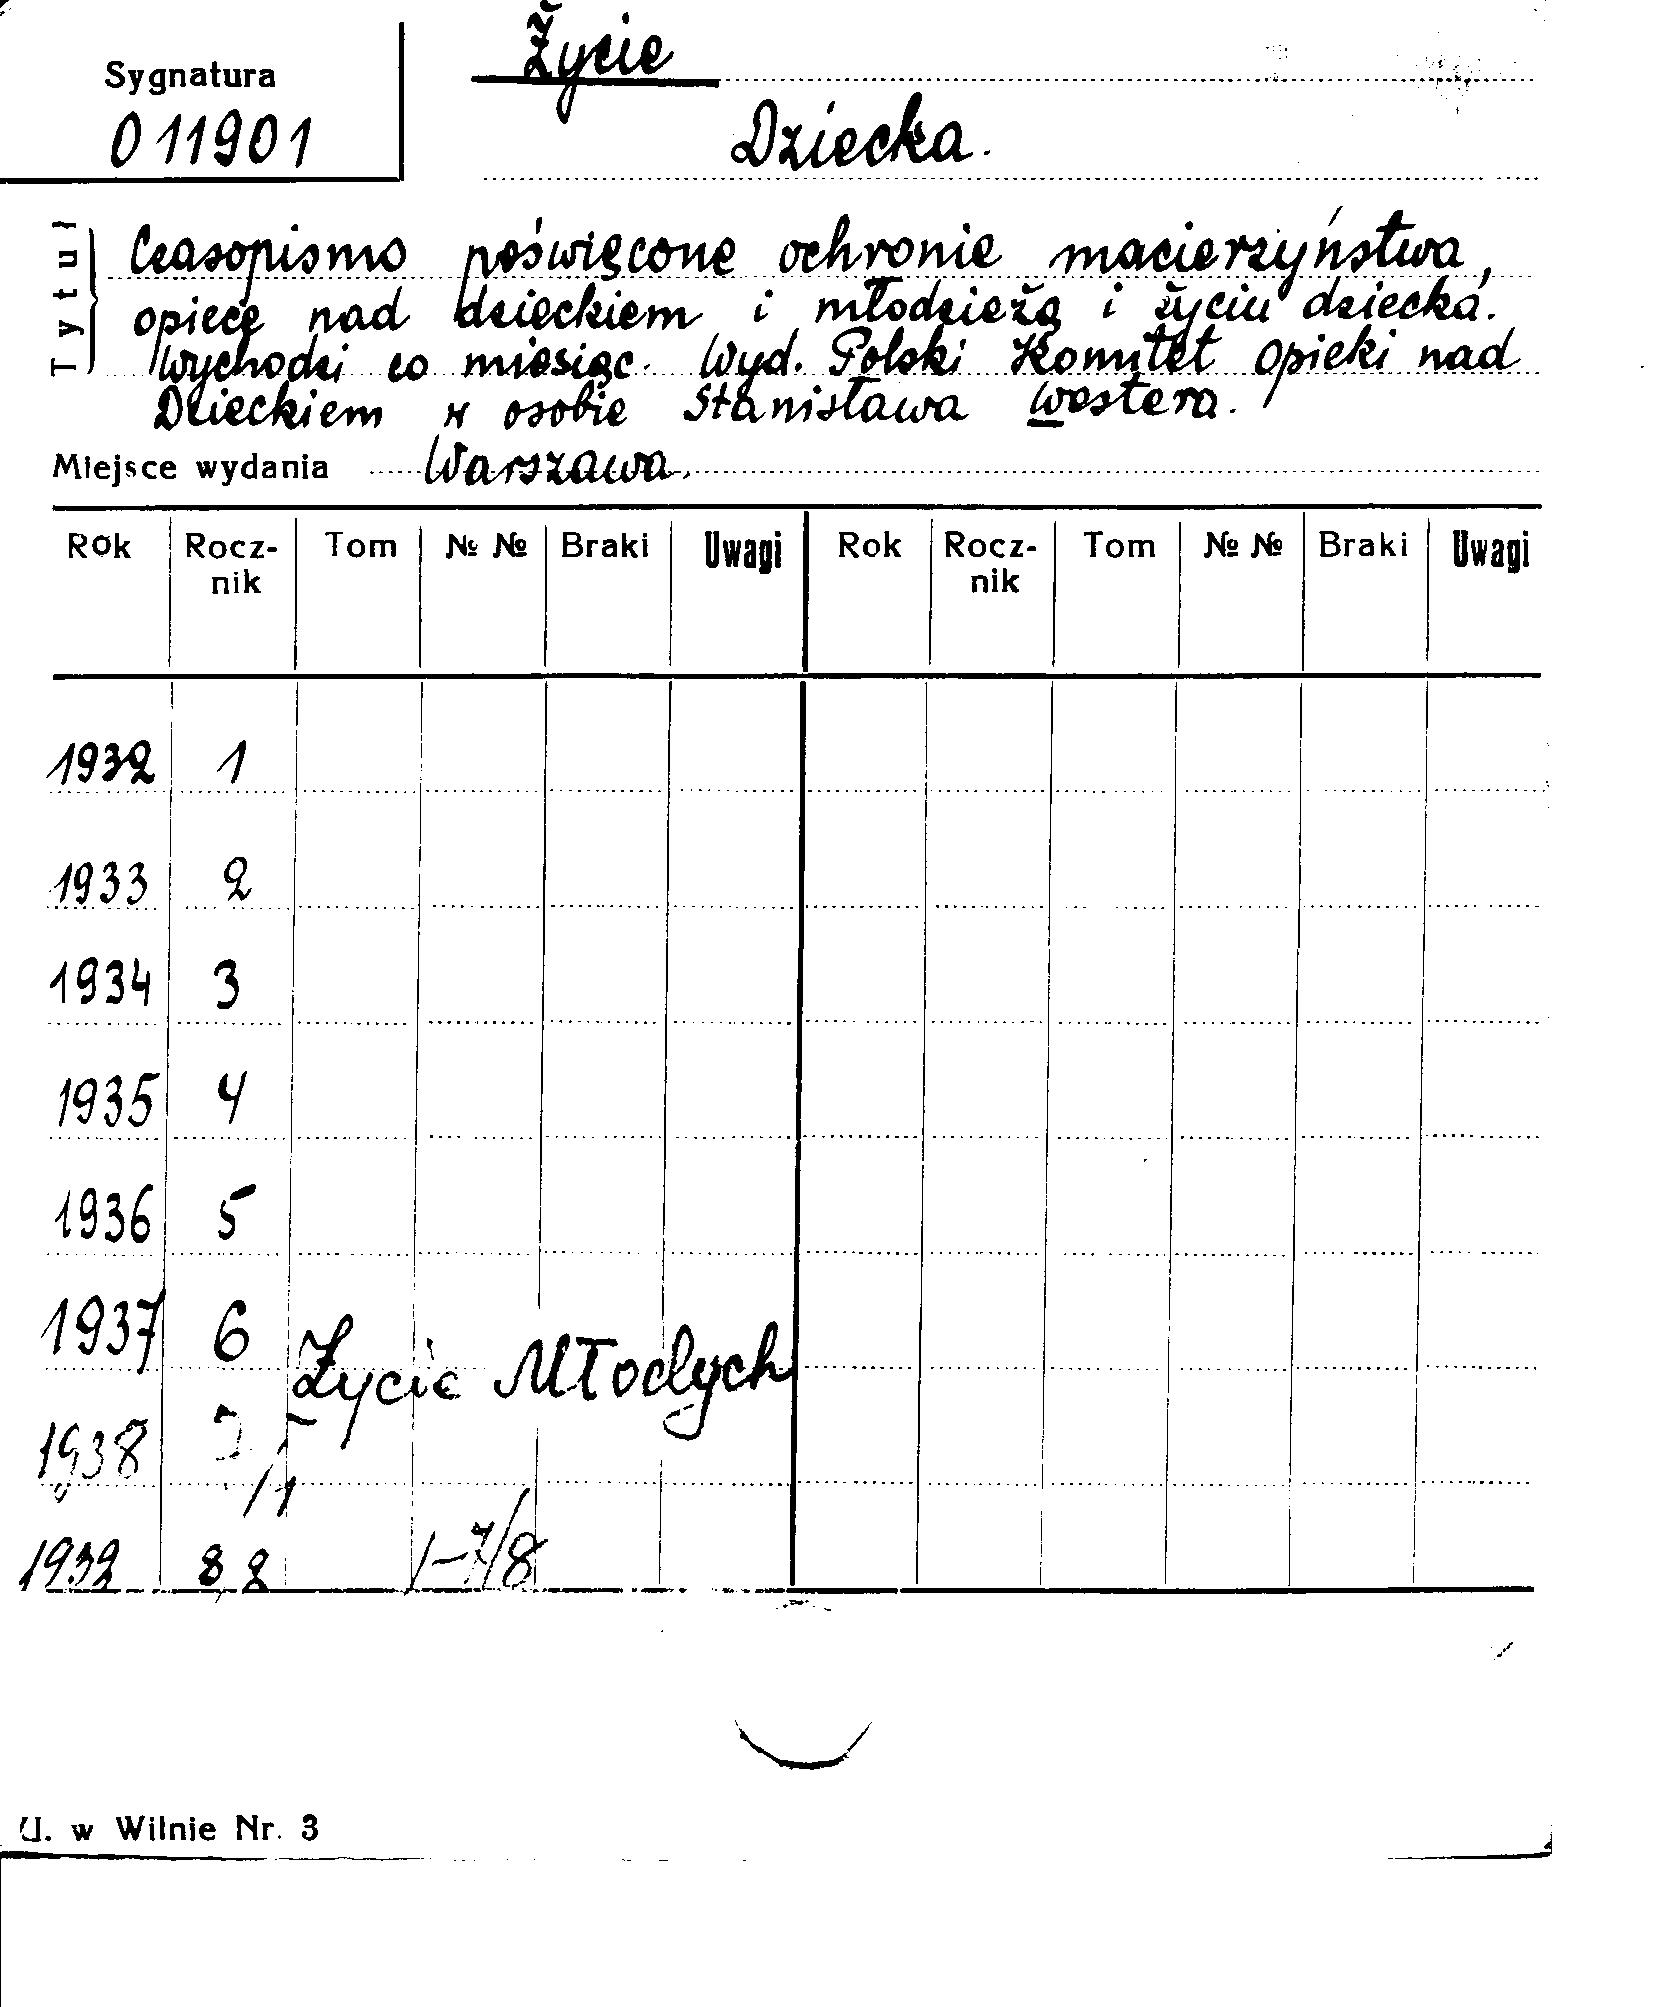 Życie
Sygnatura
011901
Dziecka.
Tytuł
Czasopismo poświęcone ochronie macierzyństwa,
opiece nad dzieckiem i młodzieżą i życiu dziecka.
Wychodzi co miesiąc. Wyd. Polski Komitet Opieki nad
Dzieckiem w osobie Stanisława Westera.
Miejsce wydania Warszawa.
Rok Rocz- Tom № № Braki Uwagi Rok Rocz- Tom № № Braki Uwagi
nik nik
1932 1
1933 2
1934 3
1935 4
1936 5
1937 6
Życie Młodych
1938
1-7/8
U. w Wilnie Nr. 3